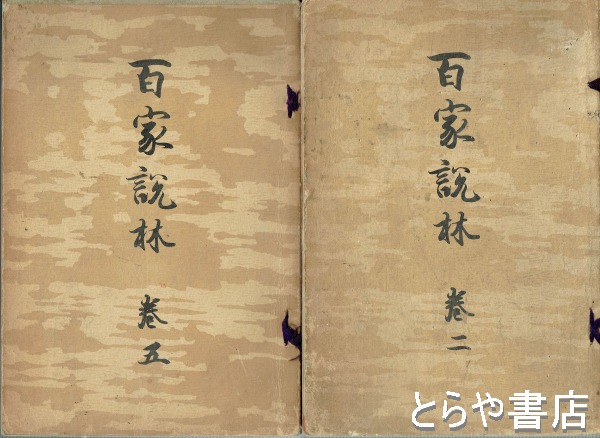 百家説林 巻二
百家説林 巻五
とらや書店